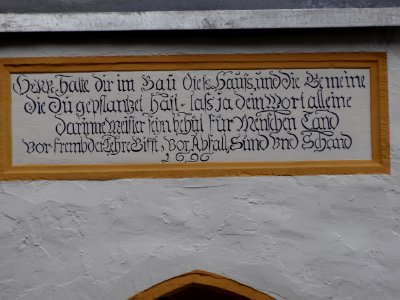 Herr, halte dir im Bau dieses Hauss, und die Gemeine
die Du gepflantzet hast. lass ja dein Wort alleine
darinne Meister sein behüt für Menschen Tand
Vor frembder Lehre Gifft, Vor Abfall, Sünd und Schand
1696